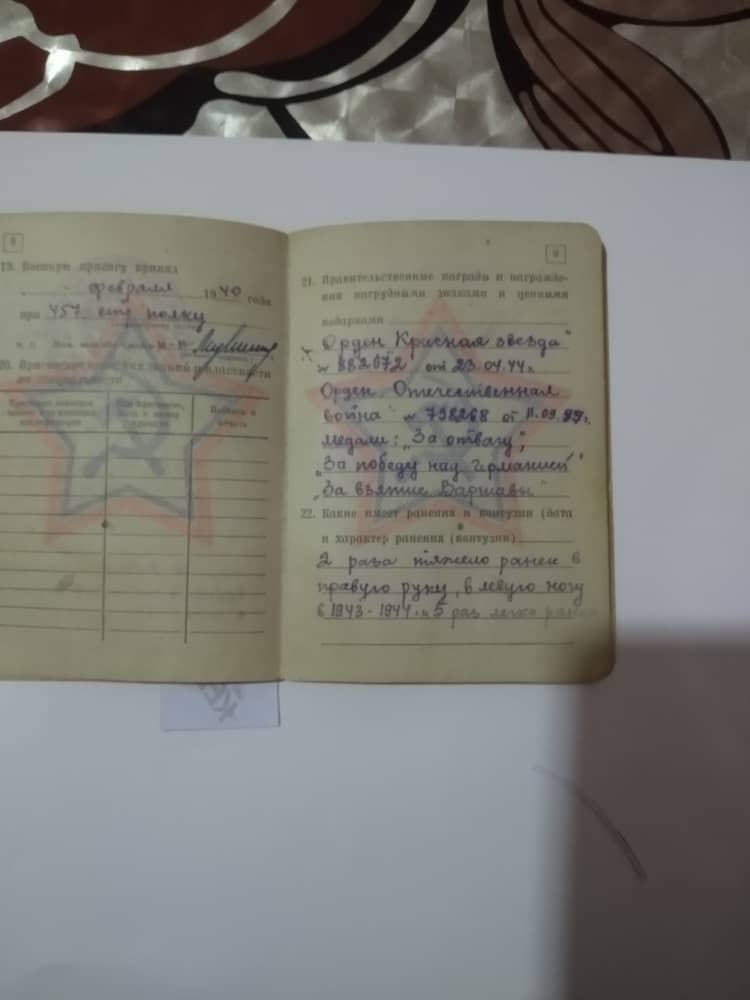 8
19. Военную присягу принял
февраля 1940 года
при 457 стр полку
20.
9
21. Правительственные награды и награжде-
ния нагрудными знаками и ценными
подарками
„Орден Красная звезда"
№ 882672 от 23.04.44г.
Орден „Отечественная
война" № 798268 от 11.09.
Медали: „За отвагу",
„За победу над Германией"
„За взятие Варшавы"
22. Какие имеет ранения и контузии (дата
и характер ранения (контузии)
2 раза тяжело ранен в
правую руку, в левую ногу
в 1943-1944 и 5 раз легко ранен